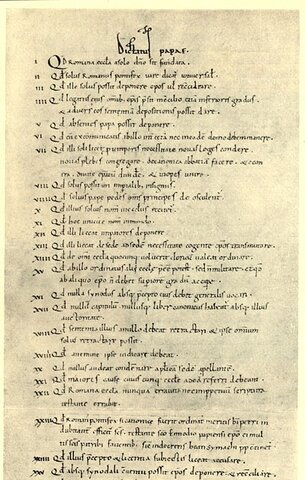 Dictatus pape.
I Qd Romana eccła a solo dño sit fundata.
II Qd solus Romanus pontifex iure dicat universał.
III Qd ille solus possit deponere epos uł recciliare.
IIII Qd legatus eius omib; epis psit in ccilio etiā inferioris gradus
& adversus eos sententiā depositionis possit dare.
V Qd absentes papa possit deponere.
VI Qd cū excommunicatis ab illo int cetera nec in eadē domo debem manere.
VII Qd illi soli licet p temporis necessitate novas leges condere
novas plebes congregare. de canonica abbatiā facere. & econ
tra. divite epatū divide. & inopes unire.
VIII Qd solus possit uti impialib; insigniis.
VIIII Qd solius pape pedes oms principes deosculent.
X Qd illius solius nom in ecclis recitet.
XI Qd hoc unicū nom in mundo.
XII Qd illi liceat imparatores deponere
XIII Qd illi liceat de sede ad sedē necessitate cogente epos transmutare.
XIIII Qd de omi eccła quocunq; voluerit clericū valeat ordinare.
XV Qd ab illo ordinatus alii eccłe pee potest. sed n militare. et qd
ab aliquo epo n debet superiorē gradū accipe.
XVI Qd nulla synodus absq; pcepto eius debet generalis vocari.
XVII Qd nullū capitulū nullusq; liber canonicus habeat absq; illius
auctoritate.
XVIII Qd sententia illius a nullo debeat retractari & ipse omniū
solus retractare possit.
XVIIII Qd a nemine ipse iudicari debeat.
XX Qd nullus audeat condēnare aplicā sedē apellantē.
XXI Qd maiores cause cuiuscunq; eccłe ad eā referri debeant.
XXII Qd Romana eccła nunquā erravit nec imppetuū scriptura
testante errabit.
XXIII Qd Roman pontifex si canonice fuerit ordinat meritis b. petri in
dubitant effici scs. testante sco Ennodio papiensi epo ei mul
tis scis patrib; faventib; sic in decretis beati symachi pp cinet.
XXIIII Qd illius pcepto & licentia subiectis liceat accusare.
XXV Qd absq; synodali cventu possit epos deponere & recciliare.